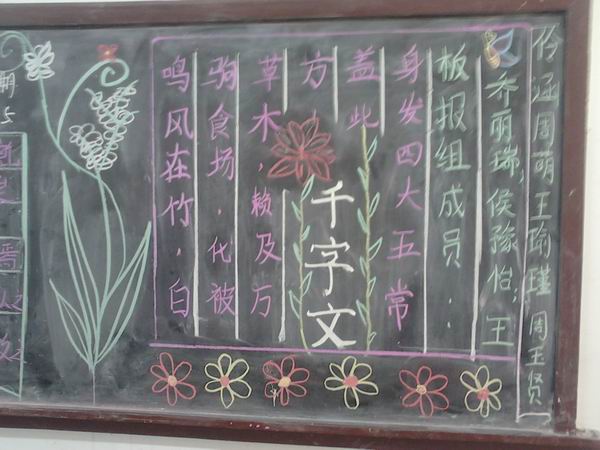 鸣风在竹，白
驹食场，化被
草木，赖及万
方，
盖此
身发四大五常
千字文
板报组成员：
乔丽瑞，侯豫怡，王
伶涵周萌王瑜瑾周王贤